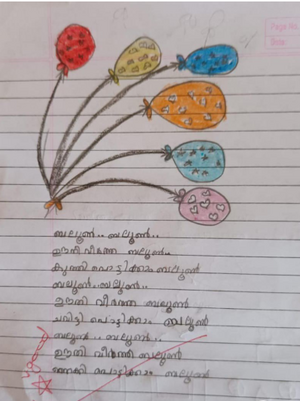 Page No.
Date
ബലൂൺ.. ബലൂൺ..
ഊതി വീർത്ത ബലൂൺ
കുത്തി പൊട്ടിക്കാം ബലൂൺ
ബലൂൺ.. ബലൂൺ..
ഊതി വീർത്ത ബലൂൺ
ചവിട്ടി പൊട്ടിക്കാം ബലൂൺ
ബലൂൺ.. ബലൂൺ..
ഊതി വീർത്ത ബലൂൺ
പൊട്ടിക്കാം ബലൂൺ